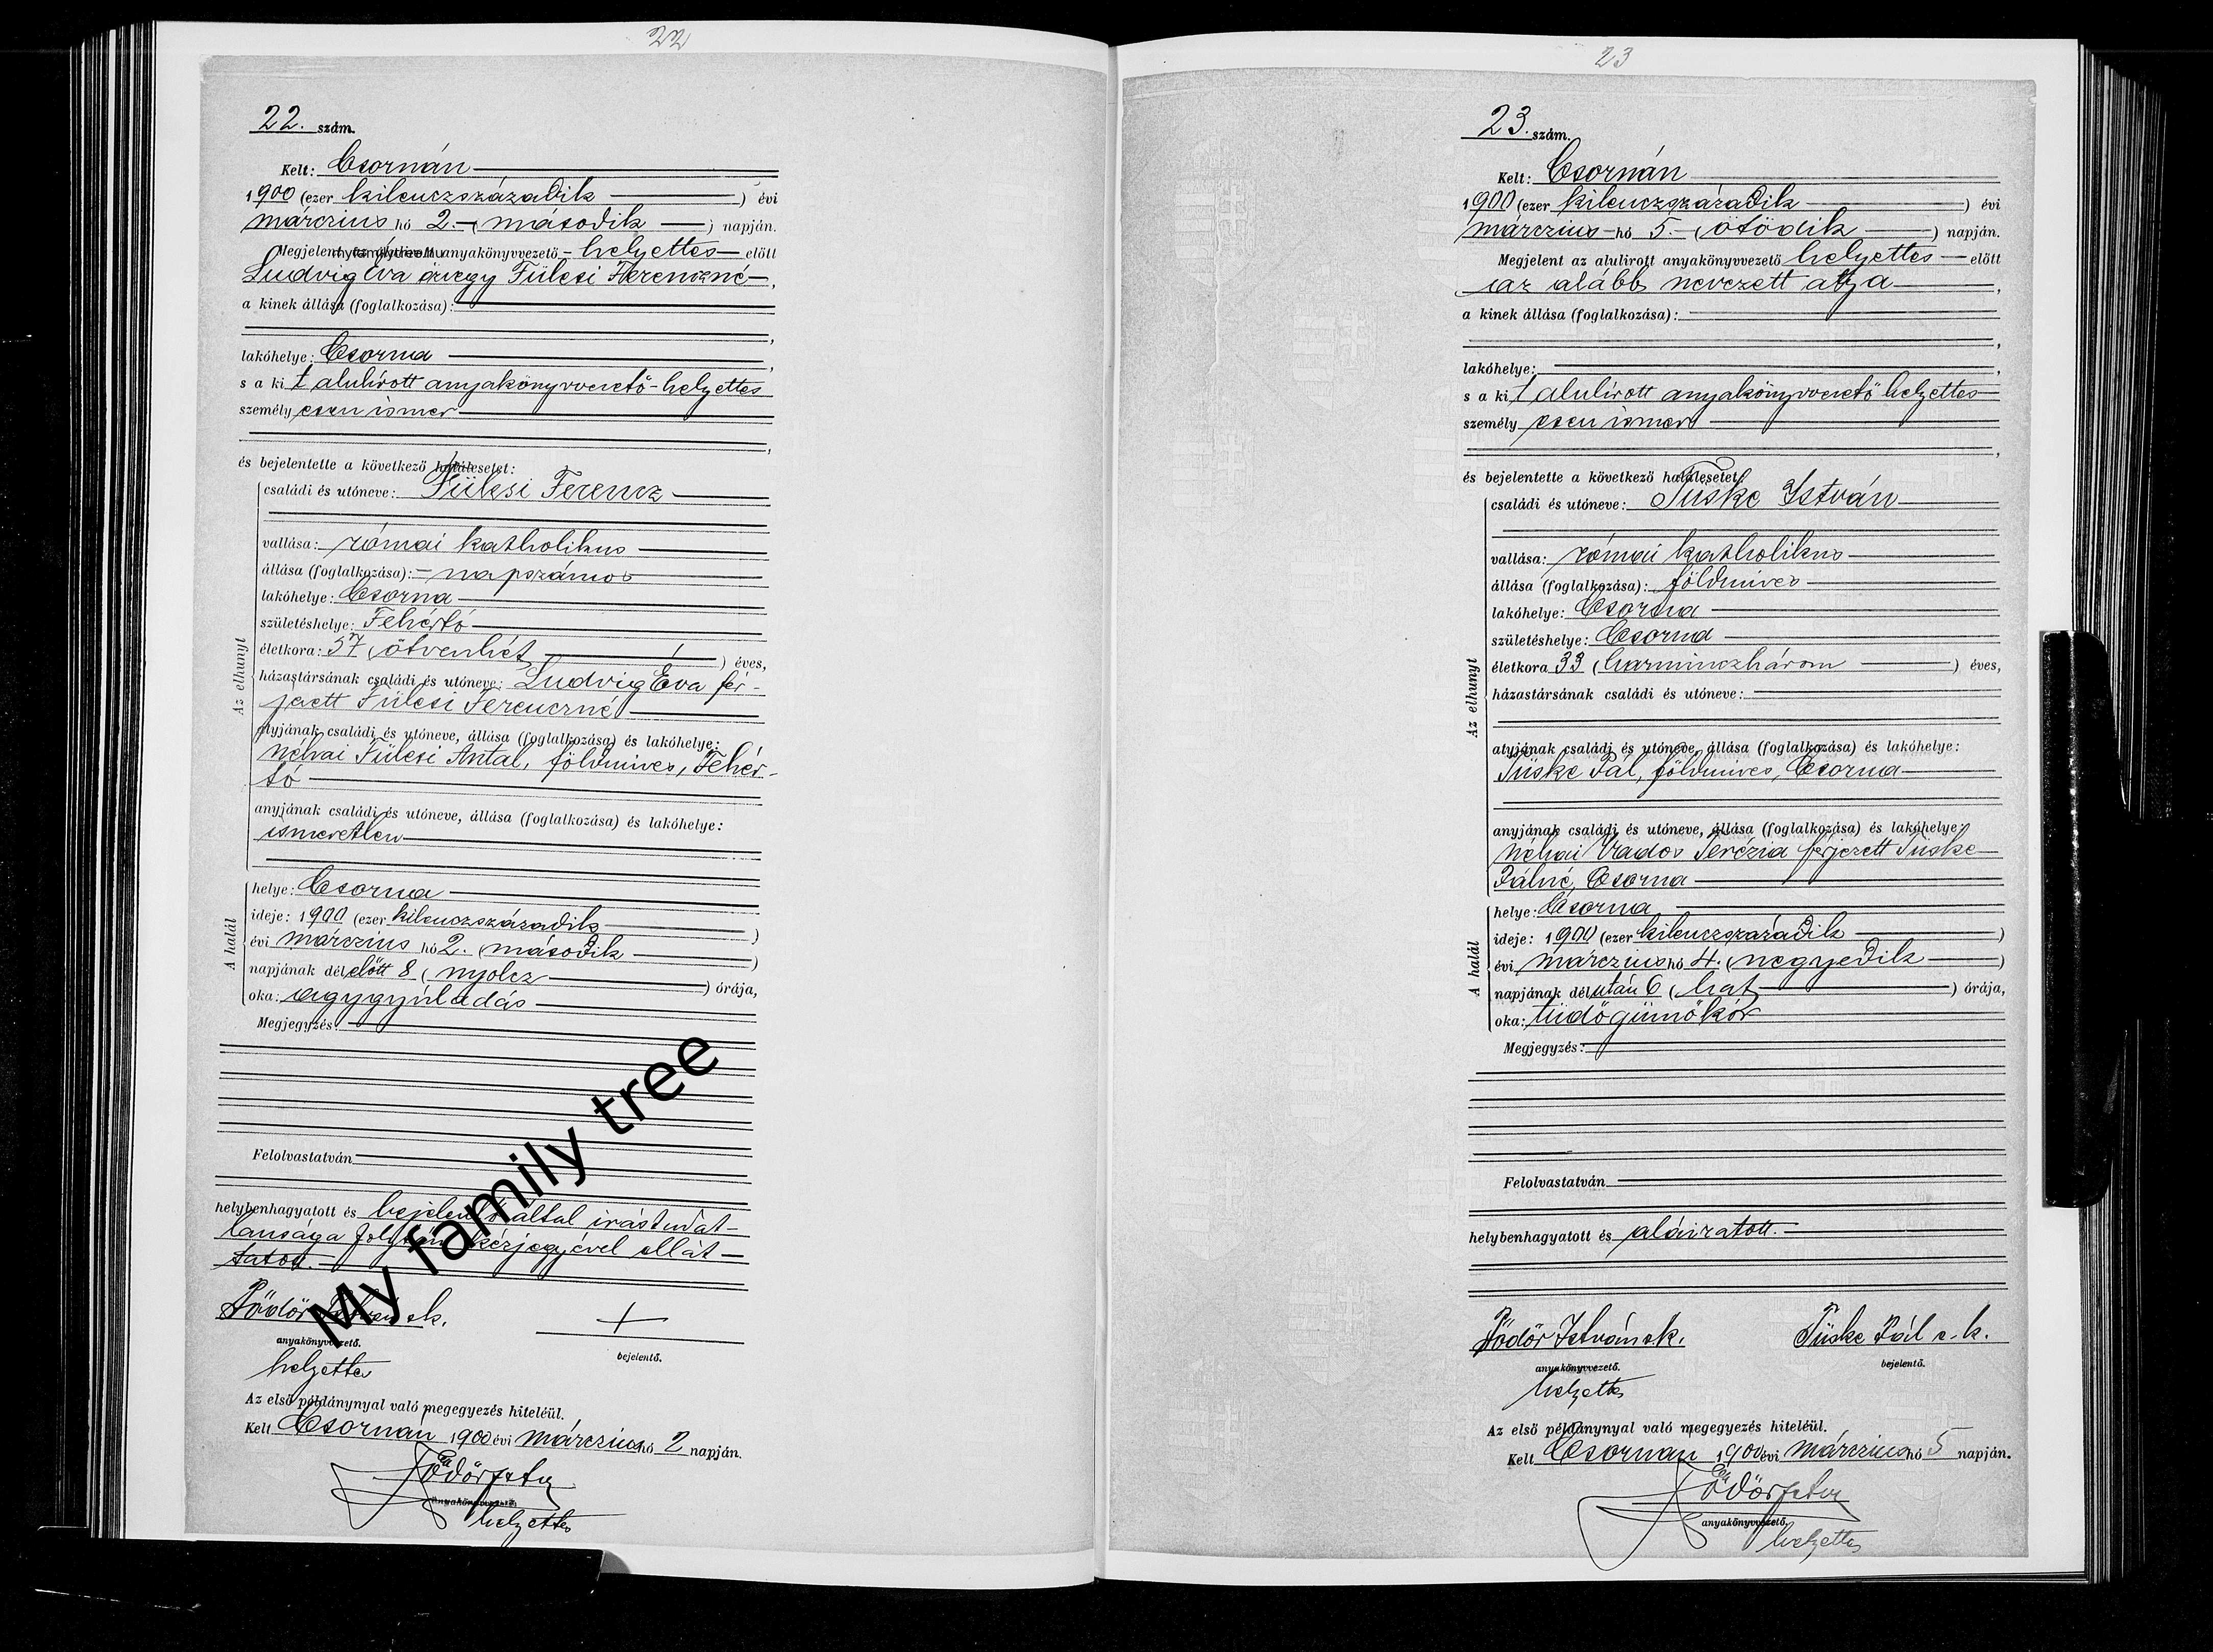 22
22. szám.
Kelt: Csornán
1900 (ezer kilenczszázadik ) évi
márczius hó 2. ( második ) napján.
Megjelent anyakönyvvezető-helyettes előtt
Ludvig Éva özvegy Fülesi Ferenczné,
a kinek állása (foglalkozása):
lakóhelye: Csorna
s a kit alulírott anyakönyvvezető-helyettes
személyesen ismer
és bejelentette a következő halálesetet:
Az elhunyt
családi és utóneve: Fülesi Ferencz
vallása: római katholikus
állása (foglalkozása): napszámos
lakóhelye: Csorna
születéshelye: Fehértó
életkora: 57 (ötvenhét ) éves,
házastársának családi és utóneve: Ludvig Éva fér-
jezett Fülesi Ferenczné
atyjának családi és utóneve, állása (foglalkozása) és lakóhelye:
néhai Fülesi Antal, földmives, Fehér-
tó
anyjának családi és utóneve, állása (foglalkozása) és lakóhelye:
ismeretlen
A halál
helye: Csorna
ideje: 1900 (ezer kilenczszázadik )
évi márczius hó 2. (második )
napjának délelőtt 8 (nyolcz ) órája,
oka: agygyúladás
Megjegyzés:
Felolvastatván
helybenhagyatott és bejelentő által irástudat-
lansága folytán kézjegyével ellát-
tatott.
My family tree
Pödör István s.k. +
anyakönyvvezető. bejelentő.
helyettes
Az első példánynyal való megegyezés hiteléül.
Kelt Csornán 1900 évi márczius hó 2 napján.
Pödör István
anyakönyvvezető
helyettes
23
23. szám.
Kelt: Csornán
1900 (ezer kilenczszázadik ) évi
márczius hó 5. (ötödik ) napján.
Megjelent az alulirott anyakönyvvezető helyettes előtt
az alább nevezett atyja,
a kinek állása (foglalkozása):
lakóhelye:
s a kit alulírott anyakönyvvezető helyettes
személyesen ismer
és bejelentette a következő halálesetet:
Az elhunyt
családi és utóneve: Tüske István
vallása: római katholikus
állása (foglalkozása): földmives
lakóhelye: Csorna
születéshelye: Csorna
életkora 33 (harminczhárom ) éves,
házastársának családi és utóneve:
atyjának családi és utóneve, állása (foglalkozása) és lakóhelye:
Tüske Pál, földmives, Csorna
anyjának családi és utóneve, állása (foglalkozása) és lakóhelye:
néhai Vados Terézia férjezett Tüske
Pálné, Csorna
A halál
helye: Csorna
ideje: 1900 (ezer kilenczszázadik )
évi márczius hó 4. (negyedik )
napjának délután 6 (hat ) órája,
oka: tüdőgümőkór
Megjegyzés:
Felolvastatván
helybenhagyatott és aláiratott.
Pödör István s.k. Tüske Pál s.k.
anyakönyvvezető. bejelentő.
helyettes
Az első példánynyal való megegyezés hiteléül.
Kelt Csornán 1900 évi márczius hó 5 napján.
Pödör István
anyakönyvvezető.
helyettes